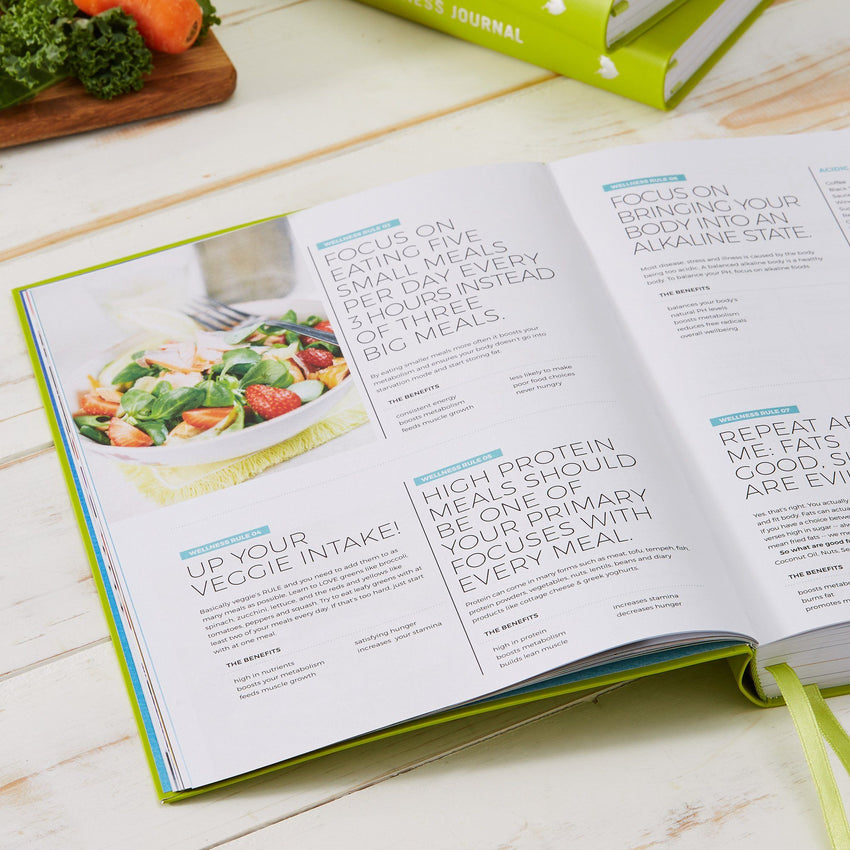 NESS JOURNAL
WELLNESS RULE 03
FOCUS ON
EATING FIVE
SMALL MEALS
PER DAY EVERY
3 HOURS INSTEAD
OF THREE
BIG MEALS.
By eating smaller meals more often it boosts your
metabolism and ensures your body doesn't go into
starvation mode and start storing fat.
THE BENEFITS
consistent energy
boosts metabolism
feeds muscle growth
less likely to make
poor food choices
never hungry
WELLNESS RULE 04
UP YOUR
VEGGIE INTAKE!
Basically veggie's RULE and you need to add them to as
many meals as possible. Learn to LOVE greens like broccoli,
spinach, zucchini, lettuce, and the reds and yellows like
tomatoes, peppers and squash. Try to eat leafy greens with at
least two of your meals every day. If that's too hard, just start
with at one meal.
THE BENEFITS
high in nutrients
boosts your metabolism
feeds muscle growth
satisfying hunger
increases your stamina
WELLNESS RULE 05
HIGH PROTEIN
MEALS SHOULD
BE ONE OF
YOUR PRIMARY
FOCUSES WITH
EVERY MEAL.
Protein can come in many forms such as meat, tofu, tempeh, fish,
protein powders, vegetables, nuts, lentils, beans and diary
products like cottage cheese & greek yoghurts.
THE BENEFITS
high in protein
boosts metabolism
builds lean muscle
increases stamina
decreases hunger
WELLNESS RULE 06
FOCUS ON
BRINGING YOUR
BODY INTO AN
ALKALINE STATE.
Most disease, stress and illness is caused by the body
being too acidic. A balanced alkaline body is a healthy
body. To balance your PH, focus on alkaline foods
THE BENEFITS
balances your body's
natural PH levels
boosts metabolism
reduces free radicals
overall wellbeing
ACIDIC
Coffee
Black
WELLNESS RULE 07
REPEAT AF
ME: FATS
GOOD, SU
ARE EVI
Yes, that's right. You actually
and fit body. Fats can actua
If you have a choice betwee
verses high in sugar – alw
mean fried fats – we me
So what are good f
Coconut Oil, Nuts, Se
THE BENEFITS
boosts metab
burns fat
promotes m